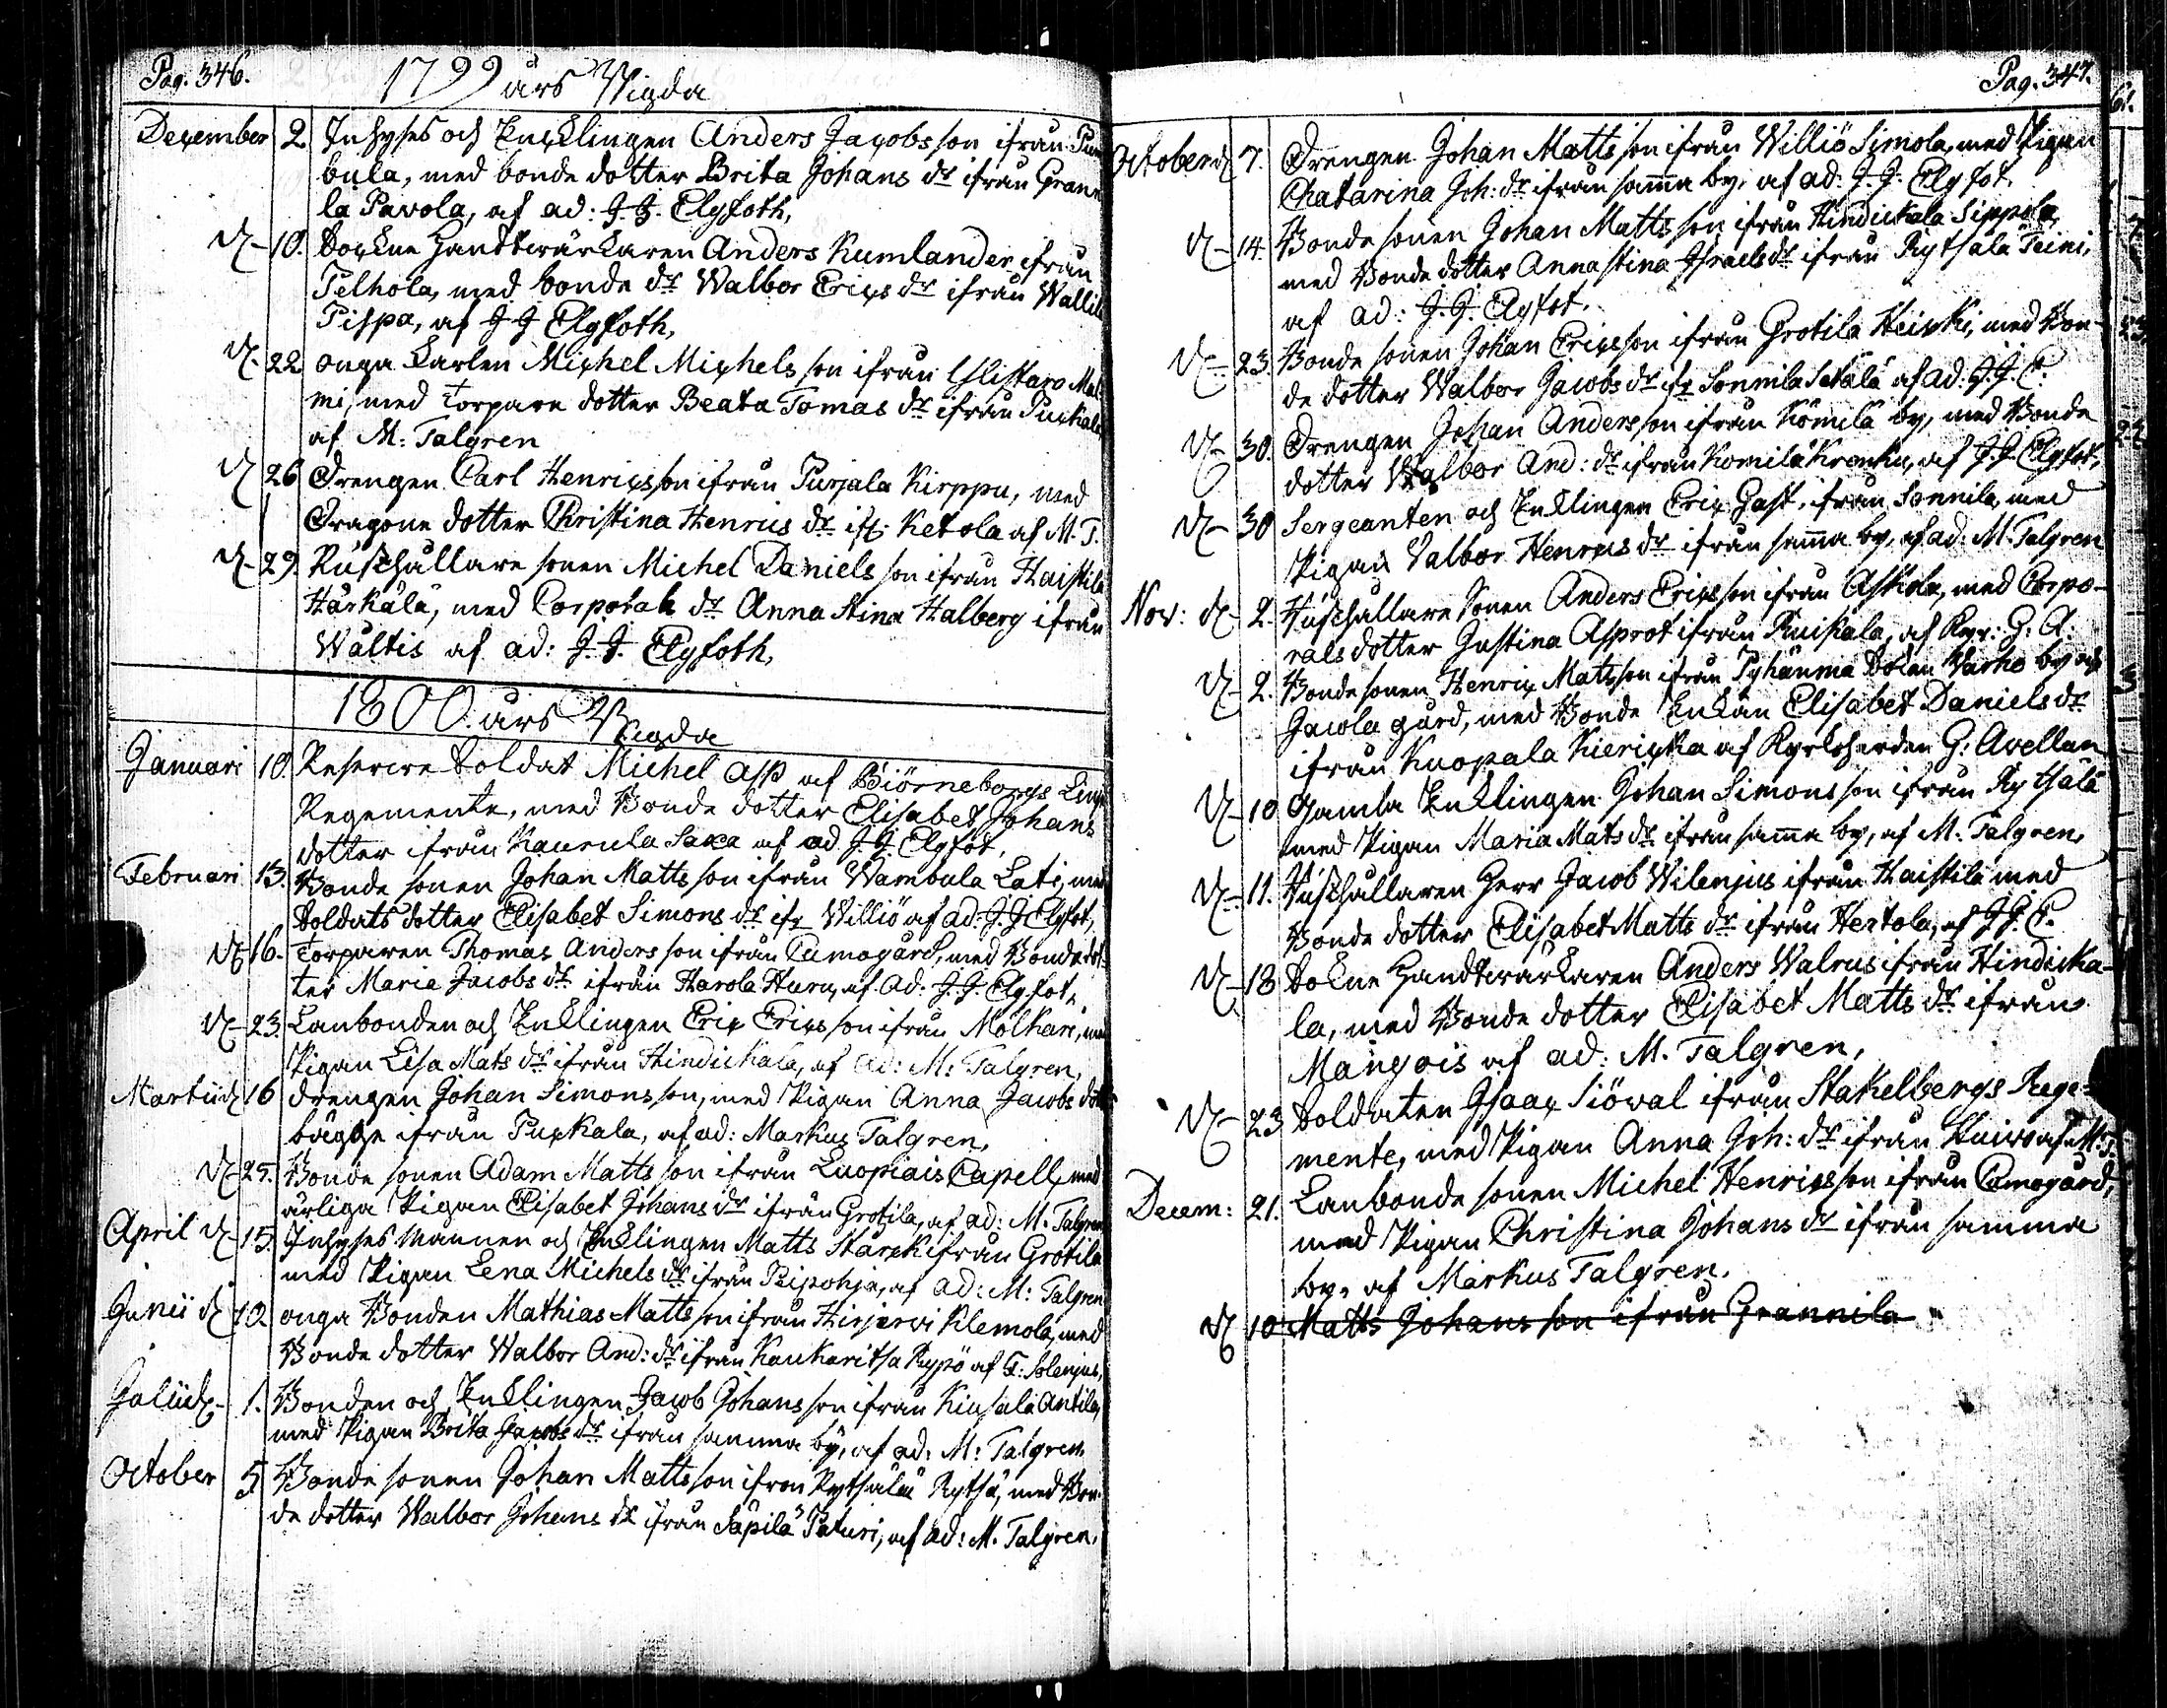 Pag. 346.
1799 års Wigda
December 2. Inhyses och Enkclingen Anders Jacobsson ifrån Pun
bula, med bonde dotter Brita Johans dr ifrån Grann
la Pavola, af ad: J. J. Elgfoth,
d 10. Sockne Handtwärkaren Anders Kumlander ifrån
Pelhola, med bonde dr Walbor Erics dr ifrån Wallila
Pispa, af J J Elgfoth,
d 22 onga Karlen Michel Michels son ifrån Ylistaro Mal
mi, med Torpare dotter Beata Tomas dr ifrån Puckala
af M: Talgren
d 26 Drengen Carl Henricsson ifrån Purjala Kirppu, med
Dragone dotter Christina Henrics dr ifr: Ketola af M. T.
d 29. Rusthållare sonen Michel Daniels son ifrån Haistila
Härkälä, med Corporals dr Anna Stina Halberg ifrån
Waltis af ad: J. J. Elgfoth,
1800 års Wigda
Januari 10. Reserve Soldat Michel Asp af Biörneborgs Läns
Regemente, med Bonde dotter Elisabet Johans
dotter ifrån Kaurula Saxa af ad J. J. Elgfot,
Februari 13. Bonde sonen Johan Matts son ifrån Wambula Lati, med
Soldats dotter Elisabet Simons dr ifr Williö af ad: J. J Elgfot,
d 16. Torparen Thomas Anders son ifrån Cumogård, med Bonde dot-
ter Maria Jacobs dr ifrån Harola Huru, af ad: J. J. Elgfot,
d 23. Lanbonden och Enklingen Eric Ericsson ifrån Molkari, med
Pigan Lisa Mats dr ifrån Hindickala, af ad: M: Talgren,
Martii d 16 drengen Johan Simons son, med Pigan Anna Jacobs dott
bägge ifrån Puckala, af ad: Markus Talgren,
d 25. Bonde sonen Adam Matts son ifrån Luopiais Capell, med
ärliga Pigan Elisabet Johans dr ifrån Grotila, af ad: M. Talgren
April d 15. Inhyses Mannen och Enklingen Matts Starck ifrån Grotila
med Pigan Lena Michels dr ifrån Pipohja, af ad: M: Talgren
Junii d 12 onga Bonden Mathias Matts son ifrån Hirjerwi Klemola, med
Bonde dotter Walbor And: dr ifrån Kaukaritsa Rypö af F: Solenius,
Julii d 1. Bonden och Enklingen Jacob Johans son ifrån Kiusala Antila,
med Pigan Brita Jacobs dr ifrån samma by, af ad: M: Talgren,
October 5 Bonde sonen Johan Matts son ifrån Rytsälä Rytsä, med Bon-
de dotter Walbor Johans dr ifrån Säpilä Paturi, af ad: M. Talgren,
Pag. 347.
October d 7. Drengen Johan Matts son ifrån Williö Simola, med Pigan
Chatarina Joh: dr ifrån samma by, af ad: J. J. Elgfot,
d 14. Bonde sonen Johan Matts son ifrån Hindickala Sippola,
med Bonde dotter Anna stina Israels dr ifrån Rytsälä Teini,
af ad: J. J. Elgfot,
d 23 Bonde sonen Johan Ericsson ifrån Grotila Heicki, med Bon-
de dotter Walbor Jacobs dr ifr Sonnila Setälä af ad: J. J. E.
d 30. Drengen Johan Andersson ifrån Kömilä by, med Bonde
dotter Walbor And: dr ifrån Komilä Krenku, af J. J. Elgfot,
d 30 Sergeanten och Enklingen Eric Gast, ifrån Sonnila, med
Pigan Valbor Henrics dr ifrån samma by, af ad: M. Talgren
Nov: d 2. Rusthållare Sonen Anders Ericsson ifrån Askola, med Corpo-
rals dotter Justina Asprot ifrån Ruiskala, af Kyr: G: A:
d 2. Bonde sonen Henric Mattsson ifrån Pyhänma Sokn Varho by och
Jacola gård, med Bonde Enkan Elisabet Daniels dr
ifrån Kuopala Kiericka af Kyrkoherden G: Avellan
d 10 Gamla Enklingen Johan Simons son ifrån Rytsälä
med Pigan Maria Mats dr ifrån samma by, af M. Talgren,
d 11. Rusthållaren Herr Jacob Wilenius ifrån Haistila med
Bonde dotter Elisabet Matts dr ifrån Hertola, af J. J. E.
d 18 Sockne Handtwärkaren Anders Walrus ifrån Hindicka-
la, med Bonde dotter Elisabet Matts dr ifrån
Mangois af ad: M. Talgren,
d 23 Soldaten Isaac Siöwal ifrån Stakelbergs Rege-
mente, med Pigan Anna Joh: dr ifrån af M: T.
Decem: 21. Lanbonde sonen Michel Henricsson ifrån Cumogård,
med Pigan Christina Johans dr ifrån samma
by, af Markus Talgren.
d 10 Matts Johans son ifrån Grannila